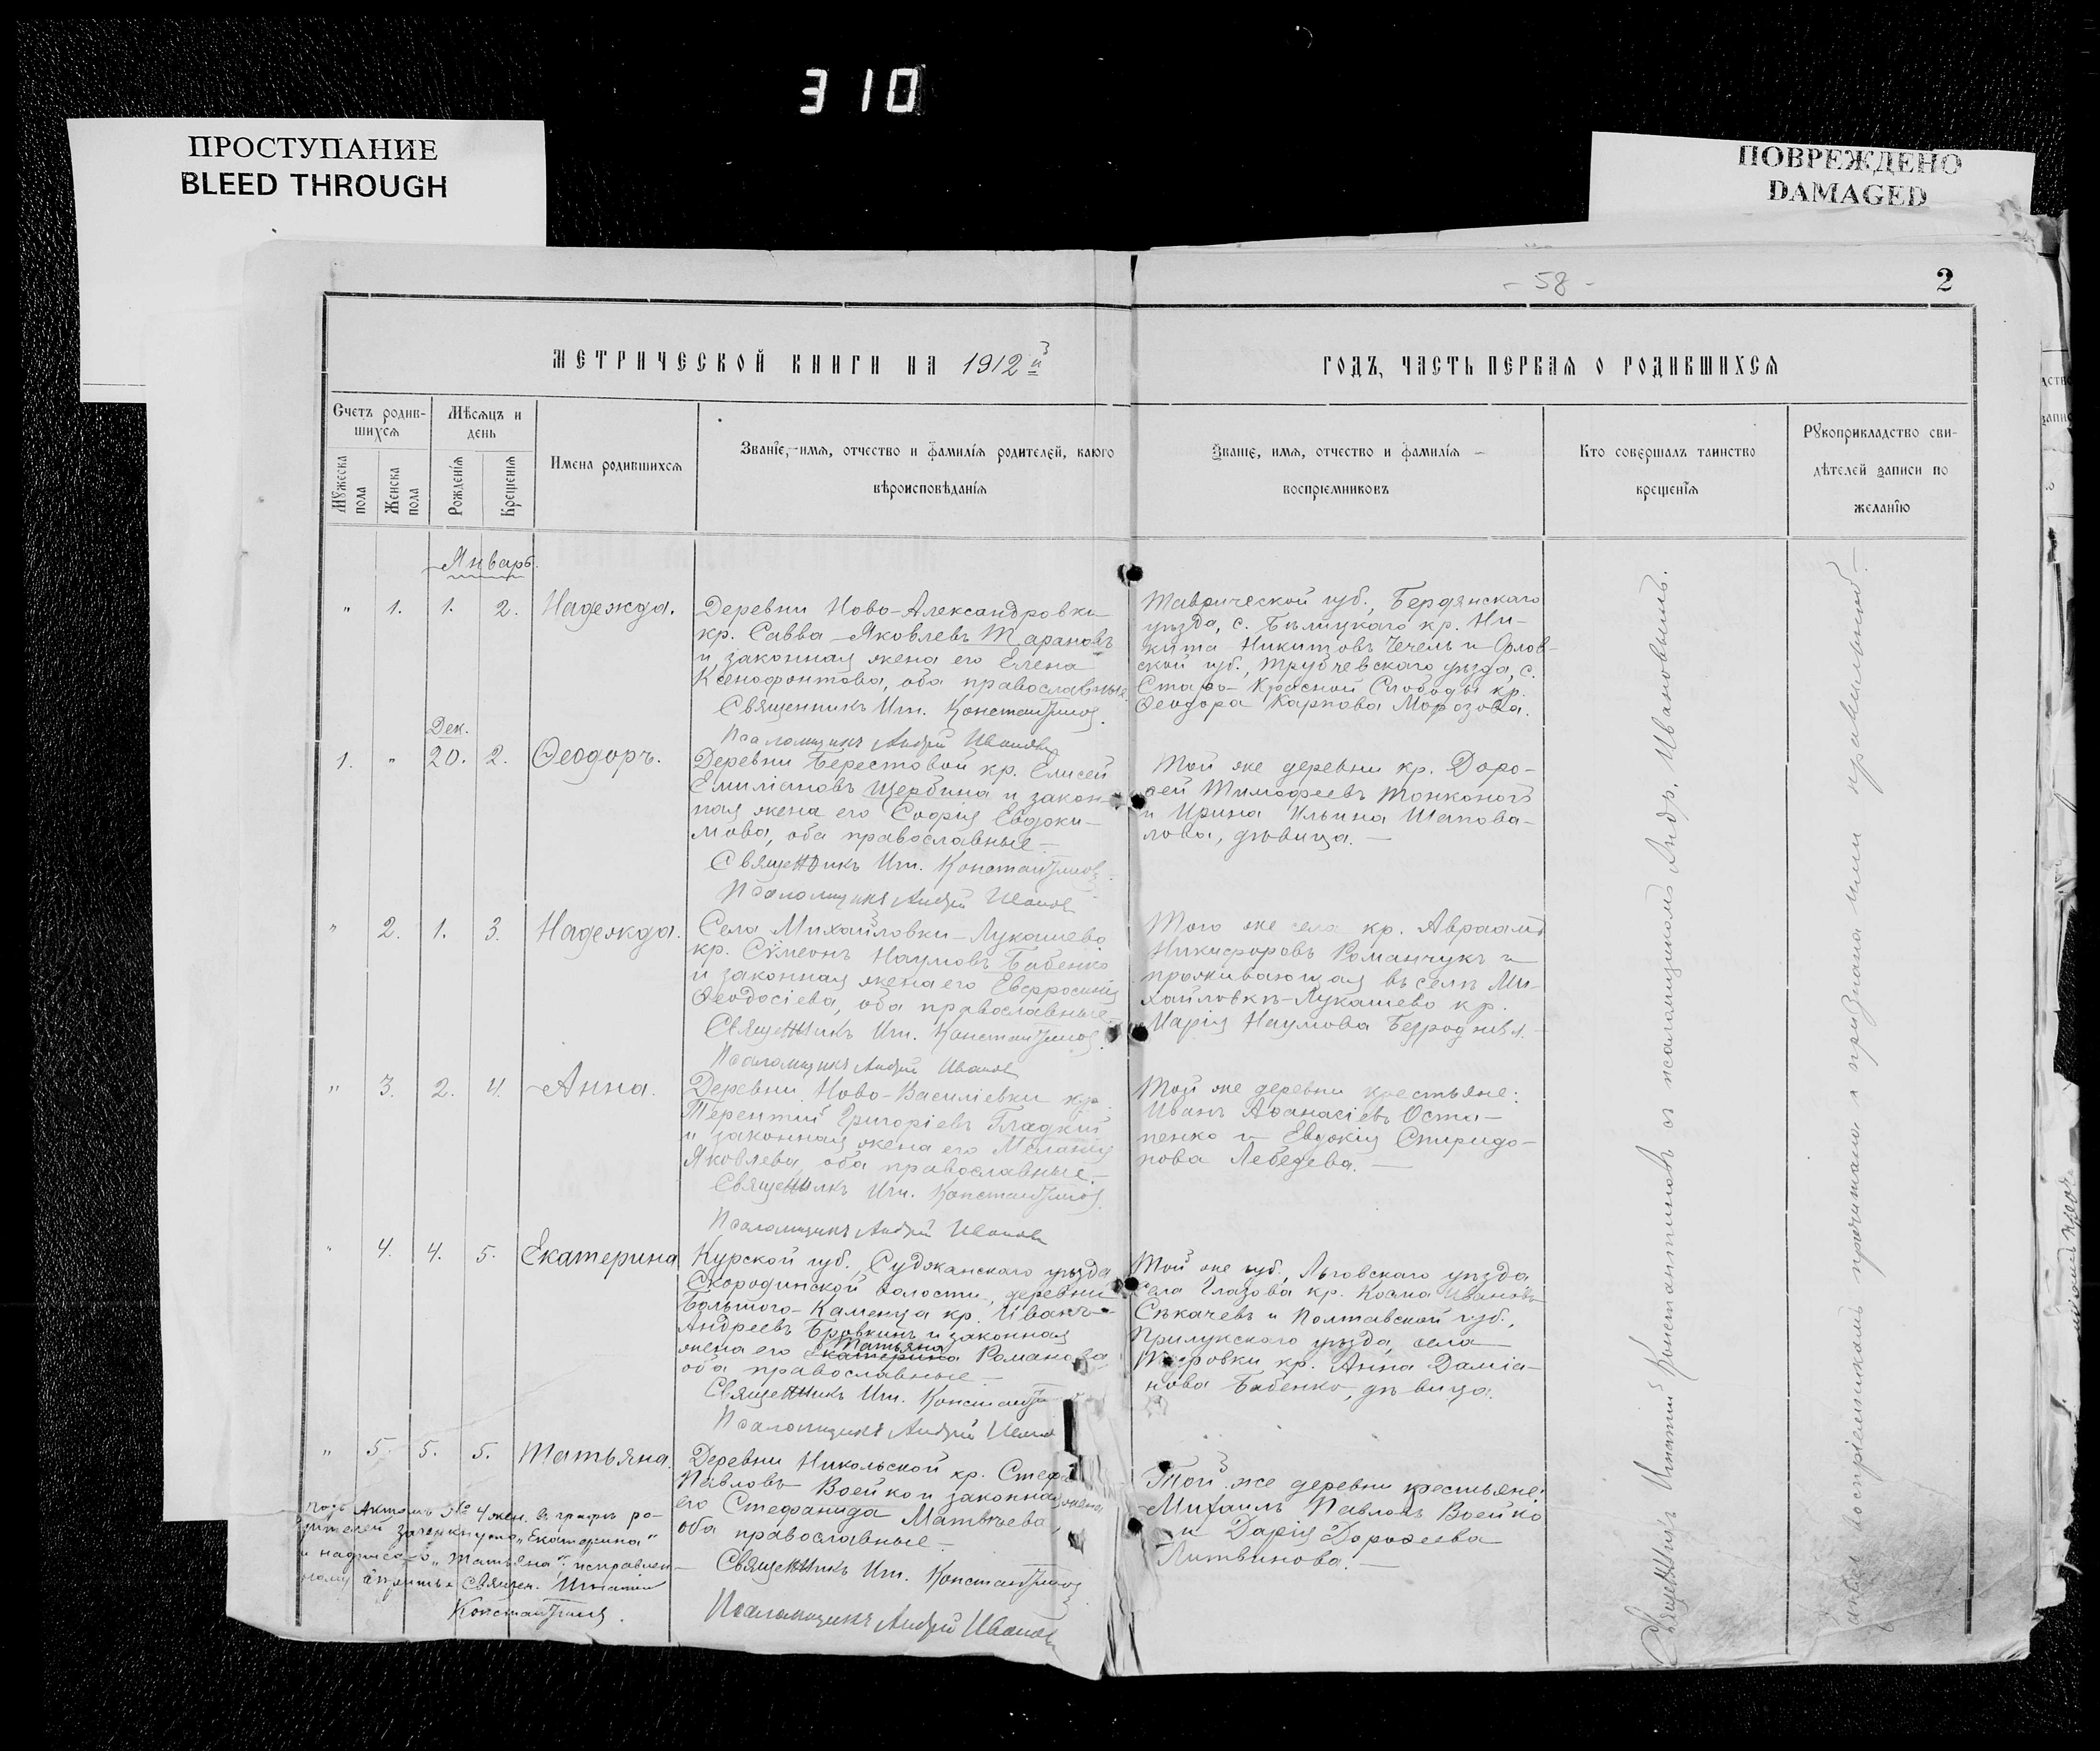 310
ПРОСТУПАНИЕ
BLEED THROUGH
ПОВРЕЖДЕНО
DAMAGED
- 58 -
2
МЕТРИЧЕСКОЙ КНИГИ НА 1912й
ГОДЪ, ЧАСТЬ ПЕРВАЯ О РОДИВШИХСЯ
Счетъ родив-
шихся
Мужеска пола
Женска пола
Мѣсяцъ и
день
Рожденія
Крещенія
Имена родившихся
Званіе, имя, отчество и фамилія родителей, какого
вѣроисповѣданія
Званіе, имя, отчество и фамилія
воспріемниковъ
Кто совершалъ таинство
крещенія
Рукоприкладство сви-
дѣтелей записи по
желанію
Январь.
" 1. 1. 2. Надежда.
Деревни Ново-Александровки
кр. Савва Яковлевъ Тарановъ
и законная жена его Елена
Ксенофонтова, оба православные.
Священникъ Игн. Константиновъ.
Псаломщикъ Андрей Ивановъ
Таврической губ., Бердянскаго
уѣзда, с. Бѣлицкаго кр. Ни-
кита Никитовъ Чечель и Орлов-
ской губ., Трубчевскаго уѣзда, с.
Старо-Красной Слободы кр.
Ѳеодора Карпова Морозова.
Дек.
1. " 20. 2. Ѳеодоръ.
Деревни Берестовой кр. Елисей
Емиліановъ Щербина и закон-
ная жена его Софія Евдоки-
мова, оба православные.
Священникъ Игн. Константиновъ.
Псаломщикъ Андрей Ивановъ
Той же деревни кр. Доро-
ѳей Тимофеевъ Тонконогъ
и Ирина Ильина Шапова-
лова, дѣвица.
" 2. 1. 3. Надежда.
Села Михайловки-Лукашево
кр. Сѵмеонъ Наумовъ Бабенко
и законная жена его Евфросинія
Ѳеодосіева, оба православные.
Священникъ Игн. Константиновъ.
Псаломщикъ Андрей Ивановъ
Того же села кр. Авраамъ
Никифоровъ Романчукъ и
проживающая въ селѣ Ми-
хайловкѣ-Лукашево кр.
Марія Наумова Безродняя.
" 3. 2. 4. Анна.
Деревни Ново-Василіевки кр.
Терентий Григоріевъ Гладкий
и законная жена его Меланія
Яковлева, оба православные.
Священникъ Игн. Константиновъ.
Псаломщикъ Андрей Ивановъ
Той же деревни крестьяне:
Иванъ Аѳанасіевъ Оста-
пенко и Евдокія Спиридо-
нова Лебедева.
" 4. 4. 5. Екатерина
Курской губ., Суджанскаго уѣзда
Скородинской волости, деревни
Большого-Каменца кр. Иванъ
Андреевъ Бровкинъ и законная
Татьяна
жена его Екатерина Романова,
оба православные
Священникъ Игн. Константи
Псаломщикъ Андрей Ивано
Той же губ., Льговскаго уѣзда,
села Глазова кр. Косма Ивановъ
Сѣкачевъ и Полтавской губ.,
Прилукскаго уѣзда, села
кр. Анна Даміа-
нова Бабенко, дѣвица.
" 5. 5. 5. Татьяна.
Деревни Никольской кр. Стефа
Павловъ Воейко и законная жена
его Стефанида Матвѣева,
оба православные.
Священникъ Игн. Константиновъ
Псаломщикъ Андрей Ивановъ
Той же деревни крестьяне:
Михаилъ Павловъ Воейко
и Дарія Дороѳеева
Литвинова.
подъ Актомъ № 4 жен. въ графѣ ро-
дителей зачеркнуто „Екатерина"
и надписано „Татьяна",
Священ. Игнатій
Константиновъ.
Священникъ Игнатий Константиновъ съ псаломщикомъ Андр. Ивановымъ.
воспріемникамъ прочитана и признана ими правильной.